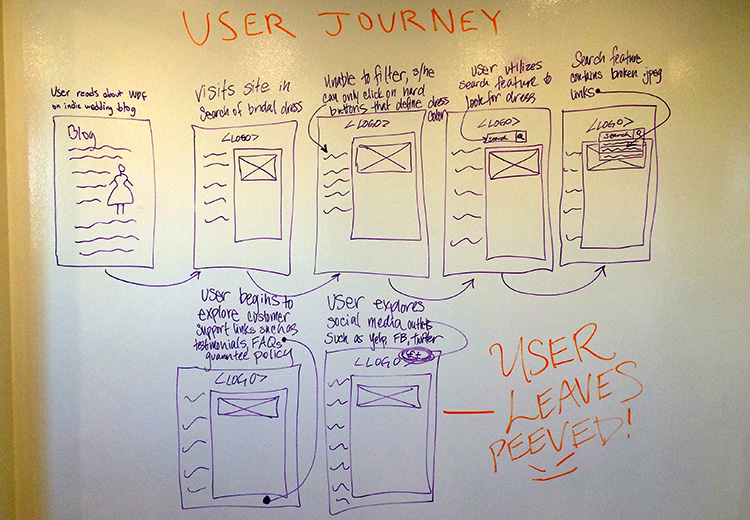 USER JOURNEY
User reads about WPF
on indie wedding blog
Blog
visits site in
Search of bridal dress
<LOGO>
Unable to filter, s/he
can only click on hard
buttons that define dress
color
<LOGO>
user utilizes
search feature to
look for dress
<LOGO>
search
Search feature
contains broken jpeg
links
<LOGO>
Search
User begins to
explore customer
support links such as
testimonials, FAQs
guarantee policy
<LOGO>
User explores
social media outlets
Such as yelp, FB, twitter
<LOGO>
USER
LEAVES
PEEVED!